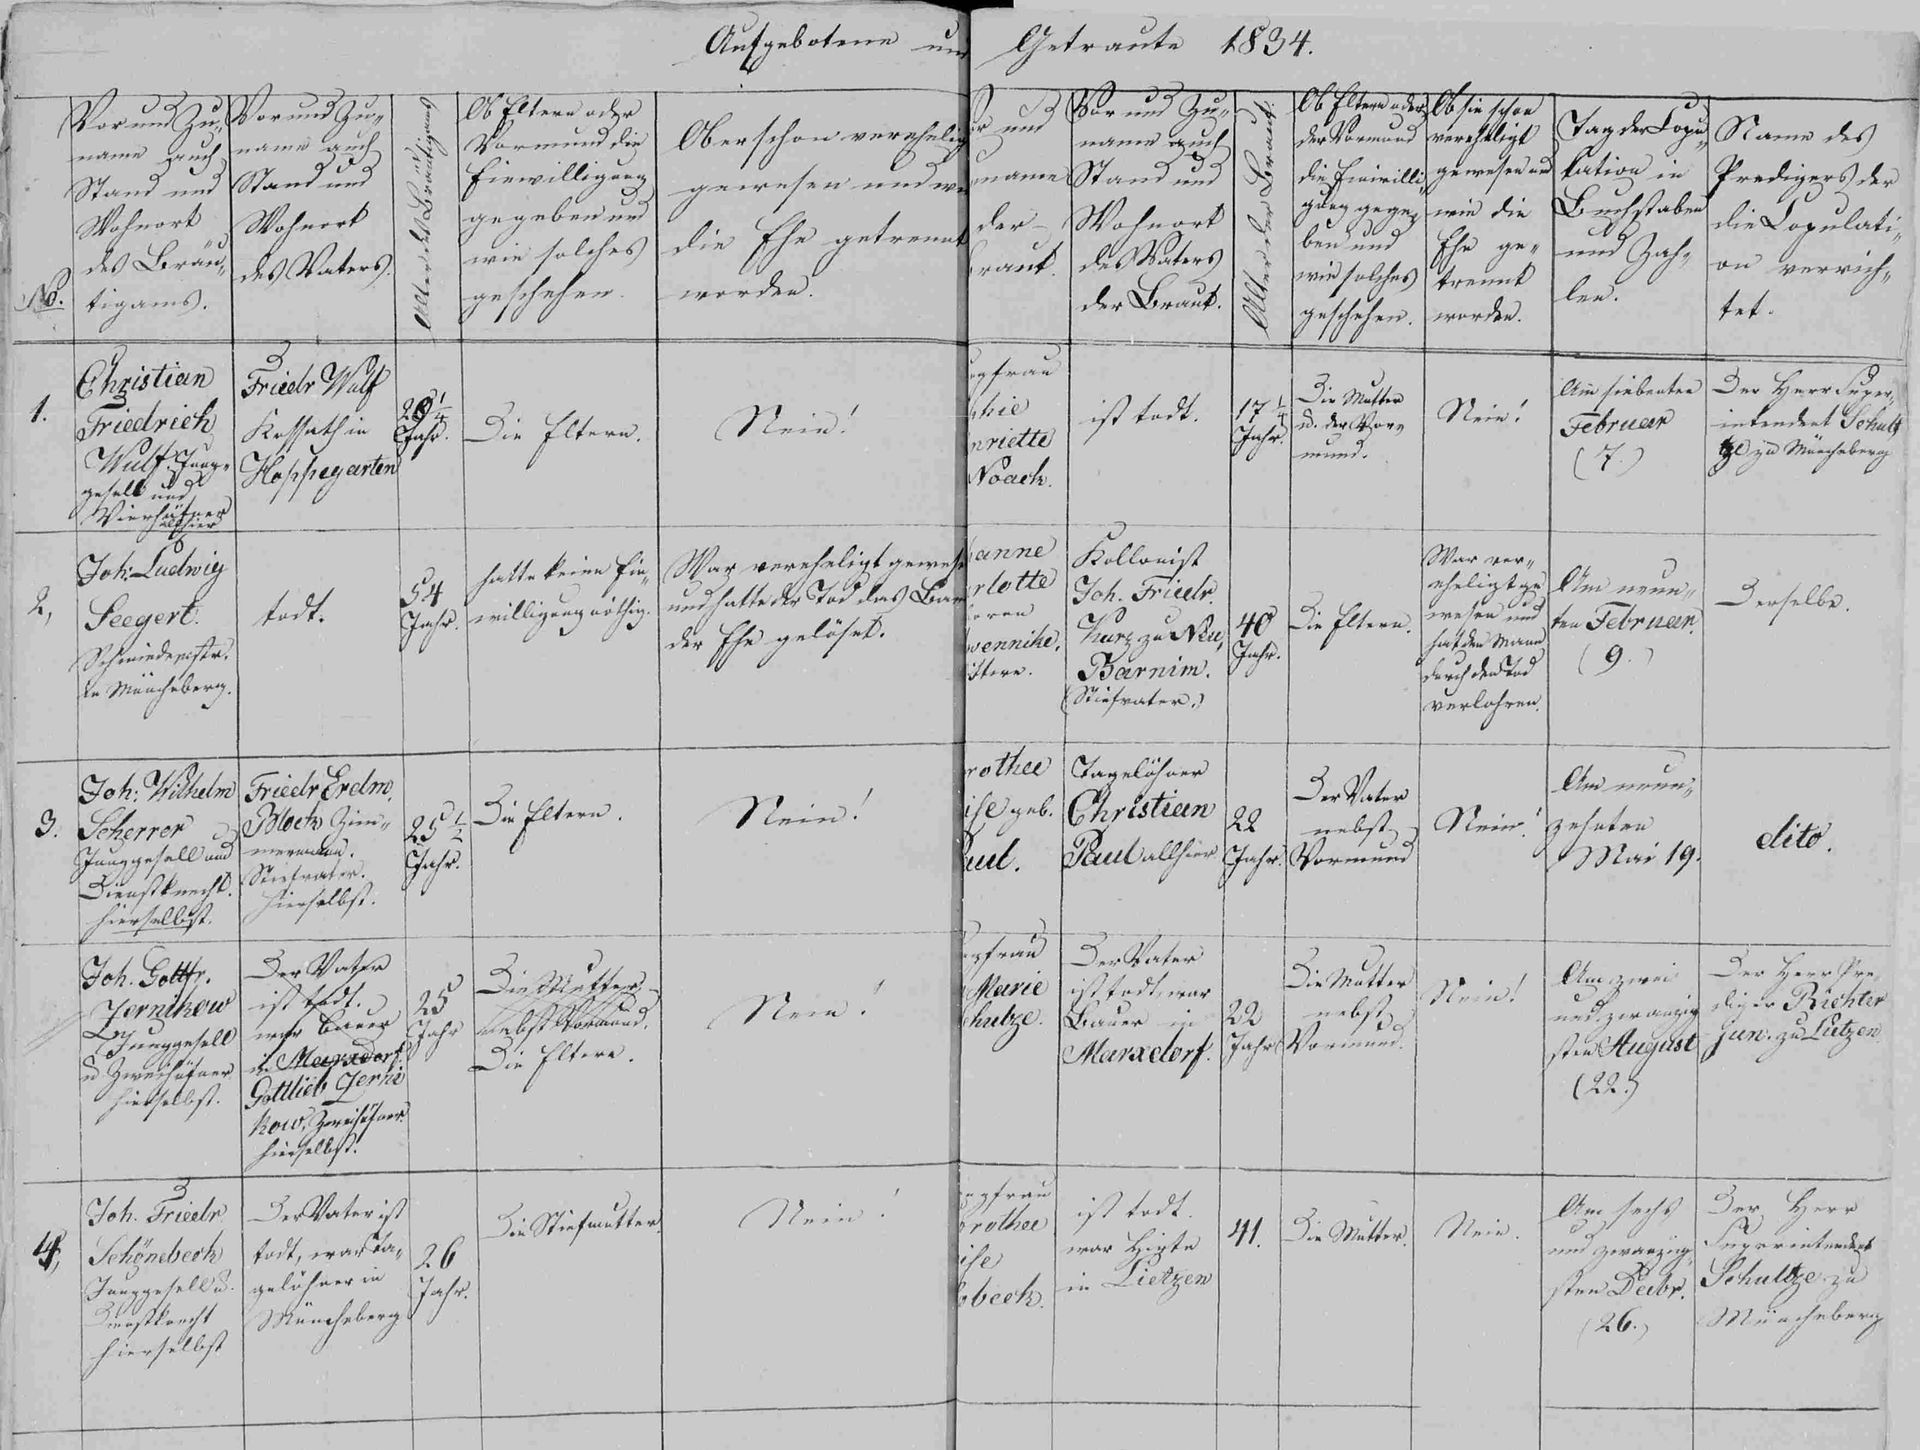 Aufgebotene und Getraute 1834.
No.
Vor und Zu-
name auch
Stand und
Wohnort
des Bräu-
tigams.
Vor und Zu-
name auch
Stand und
Wohnort
des Vaters.
Alter des Bräutigams
Ob Eltern oder
Vormund die
Einwilligung
gegeben und
wie solches
geschehen.
Ob er schon verehelig
gewesen und wie
die Ehe getrennt
worden.
or und
name
der
raut.
Vor und Zu-
name auch
Stand und
Wohnort
des Vaters
der Braut.
Alter der Braut.
Ob Eltern oder
der Vormund
die Einwilli-
gung gege-
ben und
wie solches
geschehen.
Ob sie schon
verehligt
gewesen und
wie die
Ehe ge-
trennt
worden.
Tag der Copu-
lation in
Buchstaben
und Zah-
len.
Name des
Predigers der
die Copulati-
on verrich-
tet.
1.
Christian
Friedrich
Wulf. Jung-
gesell und
Vierhüfner
allhier
Friedr Wulf
Kossath in
Hoppegarten
Jahr.
Die Eltern.
Nein!
gfrau
phie
nriette
Noack.
ist todt.
17 1/4
Jahr.
Die Mutter
u. der Vor-
mund.
Nein!
Am siebenten
Februar
(7.)
Der Herr Super-
intendent Schult
ze zu Müncheberg
2,
Joh: Ludwig
Seegert.
Schmiedemstr.
in Müncheberg.
todt.
54
Jahr.
hatte keine Ein-
willigung nöthig.
War vereheligt gewese
und hatte der Tod das Ban
der Ehe gelöset.
hanne
rlotte
boren
wennike.
ittwe.
Kollonist
Joh. Friedr.
Kurz zu Neu,
Barnim.
(Stiefvater.)
40
Jahr.
Die Eltern.
War ver-
eheligt ge
wesen und
hat den Mann
durch den Tod
verlohren.
Am neun-
ten Februar.
(9.)
Derselbe.
3.
Joh: Wilhelm
Scherrer
Junggesell und
Dienstknecht.
hierselbst.
Friedr Erdm.
Block Zim-
mermann.
Stiefvater.
hierselbst.
25 1/2
Jahr.
Die Eltern.
Nein!
rothee
ise geb.
aul.
Tagelöhner
Christian
Paul allhier
22
Jahr.
Der Vater
nebst
Vormund
Nein!
Am neun-
zehnten
Mai 19.
dito.
Joh. Gottfr.
Zernikow
Junggesell
u Zweihüfner
hierselbst.
Der Vater
ist todt.
war Bauer
in Marxdorf
Gottlieb Zerni
kow, Zweihüfner
hierselbst.
25
Jahr
Die Mutter
nebst Vormund.
Die Eltern.
Nein!
gfrau
Marie
hulze.
Der Vater
ist todt, war
Bauer in
Marxdorf.
22
Jahr
Die Mutter
nebst
Vormund.
Nein!
Am zwei
und zwanzig
sten August
(22.)
Der Herr Pre-
diger Richter
jun. zu Lietzen
4,
Joh. Friedr
Schönebeck
Junggesell u.
Dienstknecht
hierselbst
Der Vater ist
todt, war Ta-
gelöhner in
Müncheberg
26
Jahr.
Die Stiefmutter
Nein!
ngfrau
orothee
ise
beck.
ist todt.
war Hirte
in Lietzen
41.
Die Mutter.
Nein.
Am sechs
und zwanzig-
sten Decbr.
(26.)
Der Herr
Superintendent
Schultze zu
Müncheberg